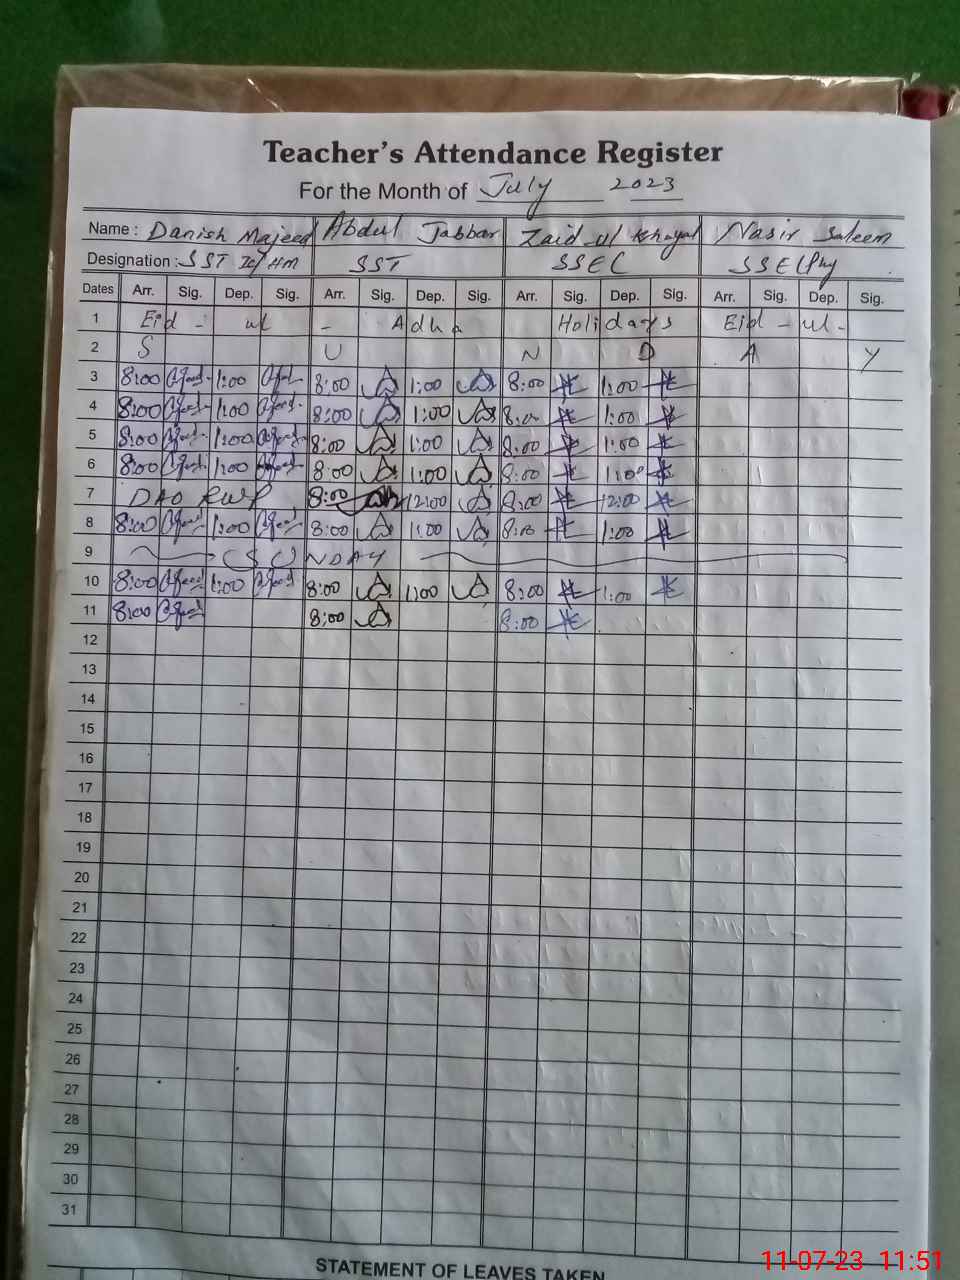 Teacher's Attendance Register
For the Month of July 2023
Name : Danish Majeed Abdul Jabbar Zaid-ul Khayal Nasir Saleem
Designation : SST Ic/HM SST SSEC SSE(Phy
Dates Arr. Sig. Dep. Sig. Arr. Sig. Dep. Sig. Arr. Sig. Dep. Sig. Arr. Sig. Dep. Sig.
1 Eid - ul - Adha Holidays Eid - ul -
2 S U N D A Y
3 8:00 1:00 8:00 1:00 8:00 1:00
4 8:00 1:00 8:00 1:00 8:00 1:00
5 8:00 1:00 8:00 1:00 8:00 1:00
6 8:00 1:00 8:00 1:00 8:00 1:00
7 DAO RWP 8:00 12:00 8:00 12:00
8 8:00 1:00 8:00 1:00 8:00 1:00
9 SUNDAY
10 8:00 1:00 8:00 1:00 8:00 1:00
11 8:00 8:00 8:00
12
13
14
15
16
17
18
19
20
21
22
23
24
25
26
27
28
29
30
31
STATEMENT OF LEAVES TAKEN
11-07-23 11:51